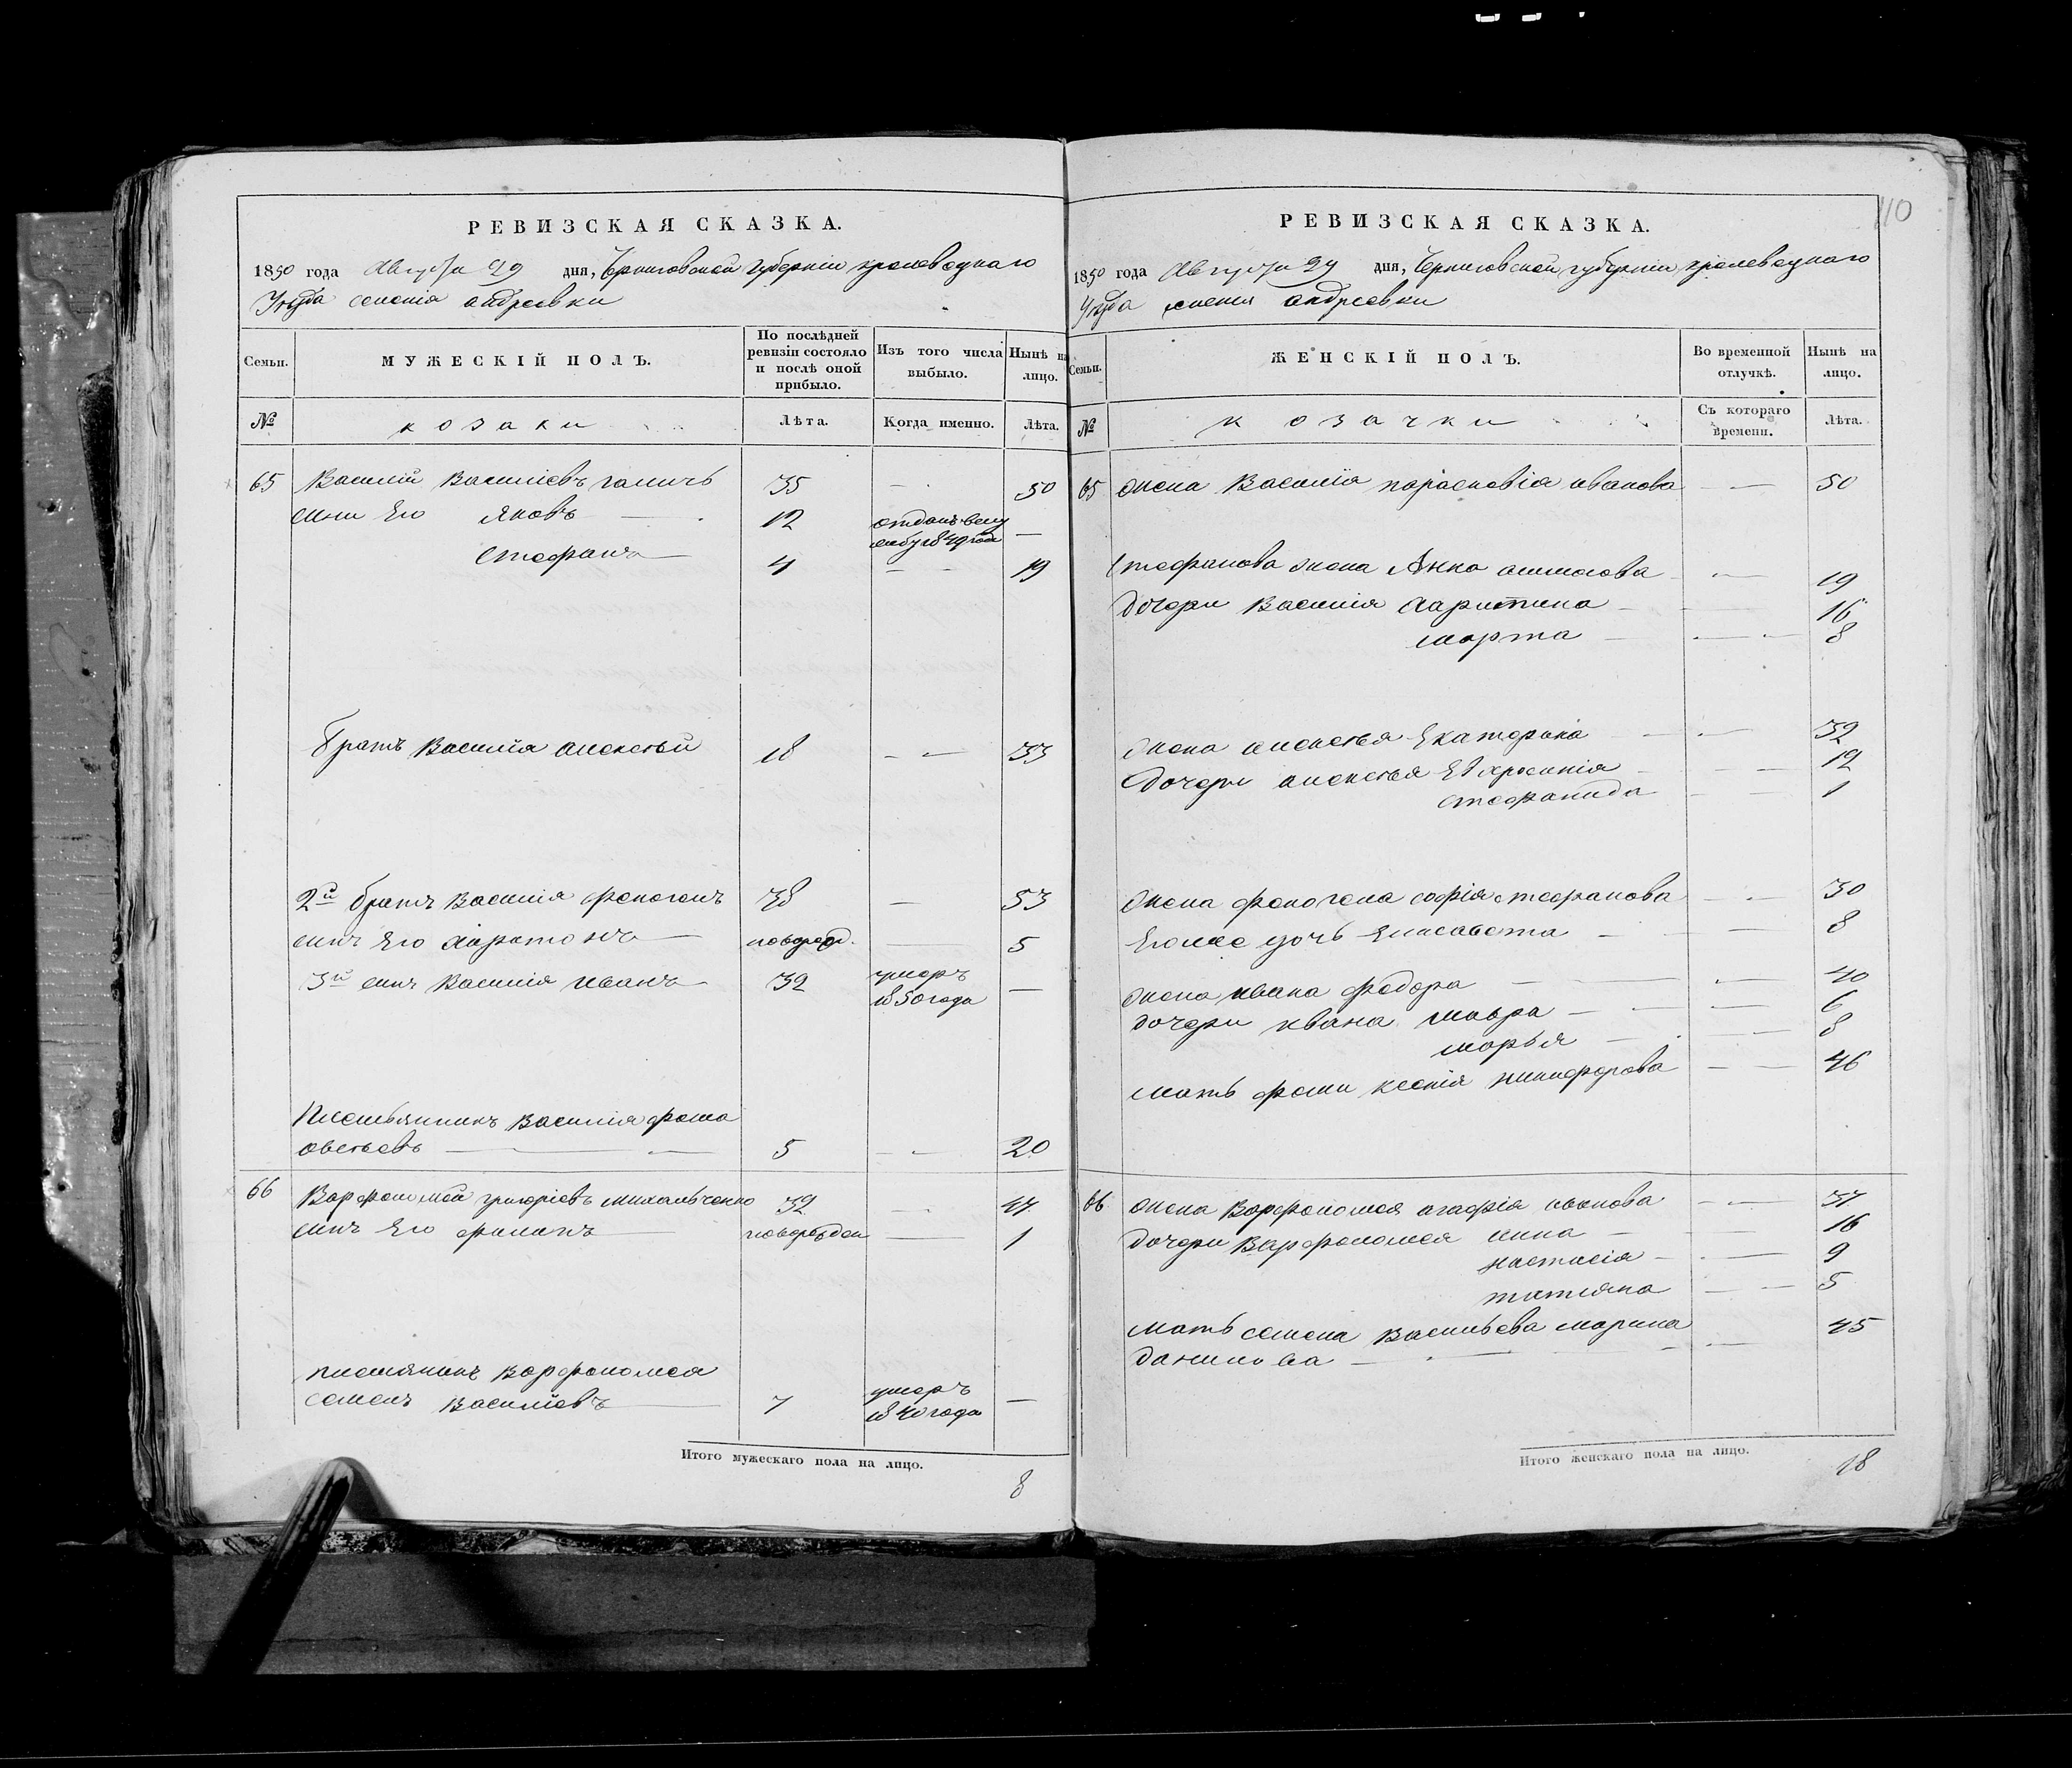 РЕВИЗСКАЯ СКАЗКА.
1850 года Августа 29 дня, Черниговской губерніи кролевецкаго
Уезда селенія андреевки
Семьи. МУЖЕСКІЙ ПОЛЪ. По послѣдней ревизіи состояло и послѣ оной прибыло. Изъ того числа выбыло. Нынѣ на лицо.
№ козаки Лѣта. Когда именно. Лѣта.
65 Василій Василіевъ галичъ 35 — 50
сыны Его Яковъ — 12 отданъ —
1849 года
Стефанъ — 4 — — 19
братъ Василія алексѣй 18 — — 33
2й братъ Василія феногенъ 38 — 53
сынъ Его Харитонъ — новорожд. — 5
3й сынъ Василія иванъ — 32 умеръ —
1850 года
Племьянникъ Василія фома
авсѣевъ — 5 — — 20
66 Варфоломей григоріевъ михальченко 32 — 47
сынъ Его филипъ — новорожден — 1
племяникъ Варфоломея
семенъ Василіевъ — 7 умеръ —
1840 года
Итого мужескаго пола на лицо. 8
110
РЕВИЗСКАЯ СКАЗКА.
1850 года Августа 29 дня, Черниговской губерніи кролевецкаго
Уезда селения андреевки
Семьи. ЖЕНСКІЙ ПОЛЪ. Во временной отлучкѣ. Нынѣ на лицо.
№ козачки Съ котораго времени. Лѣта.
65 жена Василія параскевія иванова — — 50
Стефанова жена Анна — 19
дочери Василія Харитина — 16
марта — 8
жена алексѣя Екатерина — 32
дочери алексѣя Евфросинія — 12
стефанида — 1
жена феногена софія стефанова — 30
Егоже дочь Елисавета — 8
жена ивана федора — 40
дочери ивана мавра — 6
марья — 8
мать фомы ксенія никифорова — 46
66 жена Варфоломея агафія — 37
дочери Варфоломея анна — 16
настасія — 9
татіяна — 5
мать семена Васильева марина 45
данилова —
Итого женскаго пола на лицо. 18